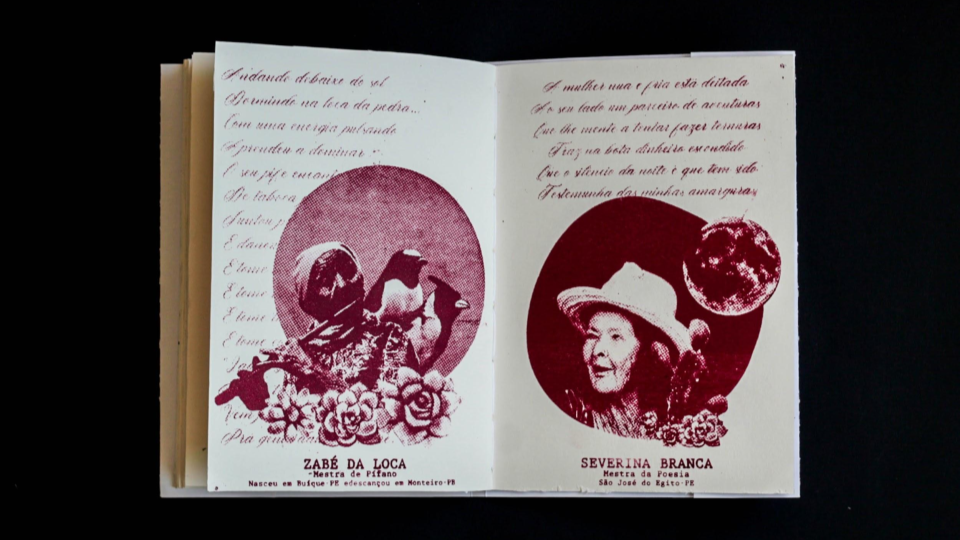 Andando debaixo do sol
Dormindo na loca da pedra...
Com uma energia pulsando
Aprendeu a dominar
O seu pife encant
De taboca
Juntou p
E dance
E tome
E tome
E tome
E tome
Vem
Pra gen
ZABÉ DA LOCA
-Mestra de Pífano
Nasceu em Buíque-PE edescançou em Monteiro-PB
A mulher nua e fria está deitada
Ao seu lado um parceiro de aventuras
Que lhe mente a tentar fazer ternuras
Traz na bota dinheiro escondido
Que o silencio da noite é que tem sido
Testemunha das minhas amarguras
SEVERINA BRANCA
Mestra da Poesia
São José do Egito-PE